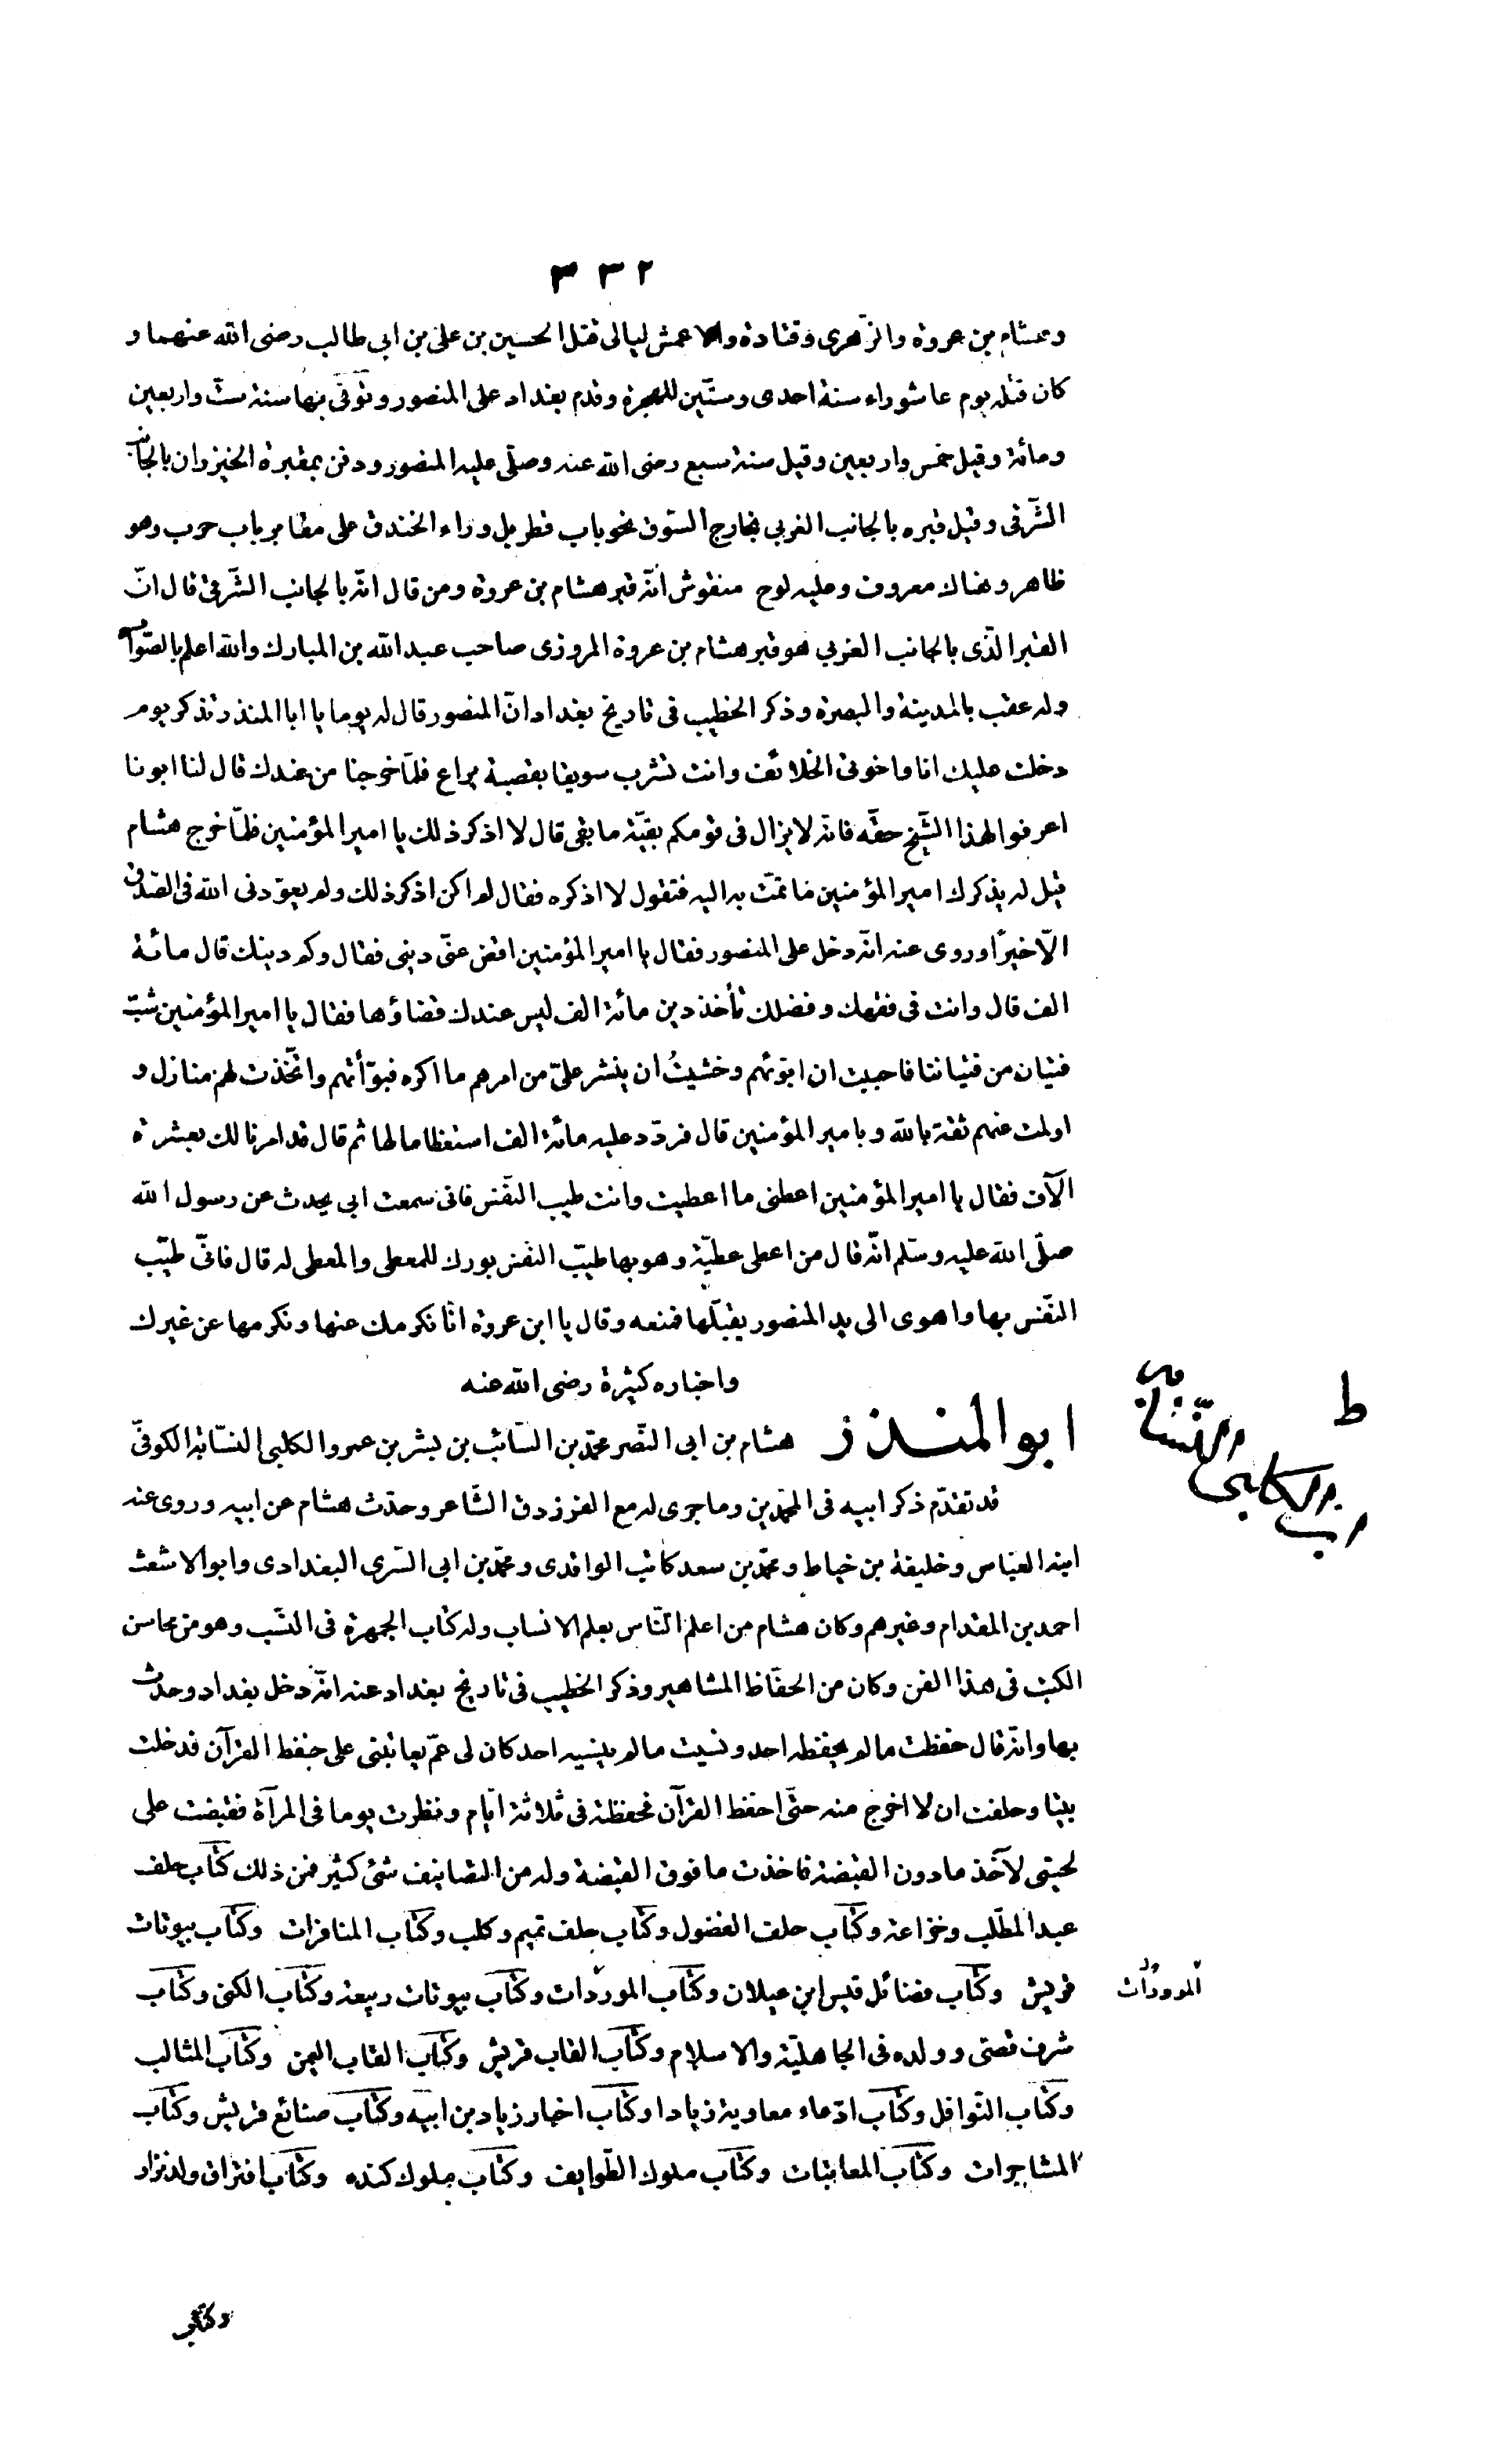 ٣٣٢
وهشام بن عروة والزّهرى وقتادة والاعمش ليالى قتل الحسين بن على بن ابى طالب رضى الله عنهما و
كان قتله يوم عاشوراء سنة احدى وستّين للهجرة وقدم بغداد على المنصور وتوفّى بها سنة ستّ واربعين
ومائة وقيل خمس واربعين وقيل سنة سبع رضى الله عنه وصلّى عليه المنصور ودفن بمقبرة الخيزران بالجانب
الشّرقى وقيل قبره بالجانب الغربي بخارج السّوق نحو باب قطربل وراء الخندق على مقابر باب حرب وهو
ظاهر هناك معروف وعليه لوح منقوش انّه قبر هشام بن عروة ومن قال انّه بالجانب الشّرقى قال انّ
القبر الّذى بالجانب الغربي هو قبر هشام بن عروة المروزى صاحب عبد الله بن المبارك والله اعلم بالصّواب
وله عقب بالمدينة والبصرة وذكر الخطيب فى تاريخ بغداد انّ المنصور قال له يوما يا ابا المنذر تذكر يوم
دخلت عليك انا واخوتى الخلائف وانت تشرب سويقا بقصبة يراع فلمّا خرجنا من عندك قال لنا ابونا
اعرفوا لهذا الشّيخ حقّه فانّه لا يزال فى قومكم بقيّة ما بقى قال لا اذكر ذلك يا امير المؤمنين فلمّا خرج هشام
قيل له يذكرك امير المؤمنين ما تمتّ به اليه فتقول لا اذكره فقال لم اكن اذكر ذلك ولم يعوّدنى الله فى الصّدق
الّا خيرًا وروى عنه انّه دخل على المنصور فقال يا امير المؤمنين اقض عنّى دينى فقال وكم دينك قال مائة
الف قال وانت فى فقهك وفضلك تأخذ دين مائة الف ليس عندك قضاؤها فقال يا امير المؤمنين شبّ
فتيان من فتياننا فاحببت ان ابوّئهم وخشيتُ ان ينشر علىّ من امرهم ما اكره فبوّأتهم واتّخذت لهم منازل و
اولمت عنهم ثقة بالله وبامير المؤمنين قال فردّد عليه مائة الف استعظاما لها ثم قال قد امرنا لك بعشرة
الآف فقال يا امير المؤمنين اعطنى ما اعطيت وانت طيب النّفس فانى سمعت ابى يحدث عن رسول الله
صلّى الله عليه وسلّم انّه قال من اعطى عطيّة وهو بها طيّب النفس بورك للمعطى والمعطى له قال فانّى طيّب
النّفس بها واهوى الى يد المنصور يقبّلها فمنعه وقال يا ابن عروة انّا نكرمك عنها ونكرمها عن غيرك
واخباره كثيرة رضى الله عنه
ابو المنذر هشام بن ابى النّصر محمّد بن السّائب بن بشر بن عمرو الكلبى النسّابة الكوفىّ
ط
ابن الكلبى النّسّابة
قد تقدّم ذكر ابيه فى المحمّدين وما جرى له مع الفرزدق الشّاعر وحدّث هشام عن ابيه وروى عنه
ابنه العبّاس وخليفة بن خياط ومحمّد بن سعد كاتب الواقدى ومحمّد بن ابى السّرى البغدادى وابو الاشعث
احمد بن المقدام وغيرهم وكان هشام من اعلم النّاس بعلم الانساب وله كتاب الجمهرة فى النّسب وهو من محاسن
الكتب فى هذا الفن وكان من الحفّاظ المشاهير وذكر الخطيب فى تاريخ بغداد عنه انّه دخل بغداد وحدّث
بها وانّه قال حفظت ما لم يحفظه احد ونسيت ما لم ينسيه احد كان لى عمّ يعاتبنى على حفظ القرآن فدخلت
بيتا وحلفت ان لا اخرج منه حتّى احفظ القرآن فحفظته فى ثلاثة ايّام ونظرت يوما فى المرآة فقبضت على
لحيتى لآخذ ما دون القبضة فاخذت ما فوق القبضة وله من التصانيف شئ كثير فمن ذلك كتاب حلف
عبد المطّلب وخزاعة وكتاب حلف الفضول وكتاب حلف تميم وكلب وكتاب المنافرات وكتاب بيوتات
قريش وكتاب فضائل قيس ابن عيلان وكتاب الموردات وكتاب بيوتات ربيعة وكتاب الكنى وكتاب
الموودات
شرف قصّى وولده فى الجاهليّة والاسلام وكتاب القاب قريش وكتاب القاب اليمن وكتاب المثالب
وكتاب النّوافل وكتاب ادّعاء معاوية زيادا وكتاب اخبار زياد بن ابيه وكتاب صنائع قريش وكتاب
المشاجرات وكتاب المعاتبات وكتاب ملوك الطّوايف وكتاب ملوك كنده وكتاب افتراق ولد نزار
وكتاب